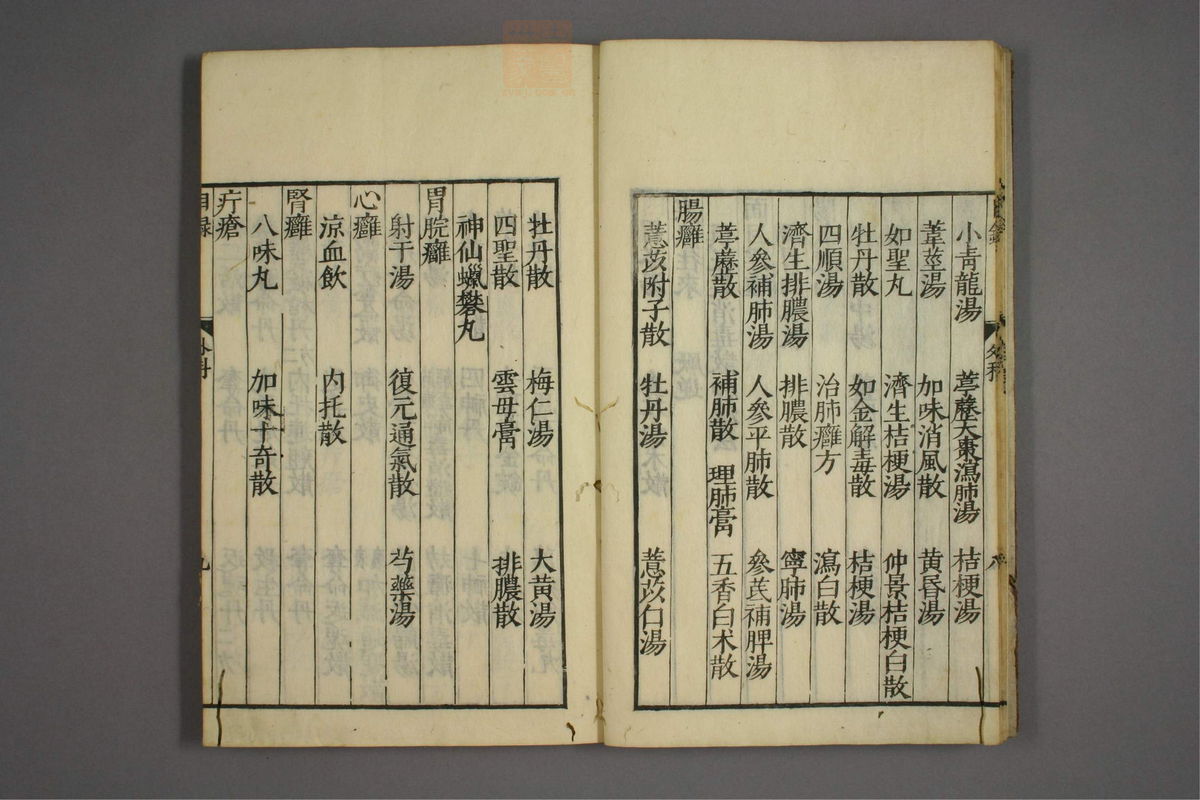 小青龍湯　葶藶大棗瀉肺湯　桔梗湯
葦莖湯　加味消風散　黃昏湯
如聖丸　濟生桔梗湯　仲景桔梗白散
牡丹散　如金解毒散　桔梗湯
四順湯　治肺癰方　瀉白散
濟生排膿湯　排膿散　寧肺湯
人參補肺湯　人參平肺散　參芪補脾湯
葶藶散　補肺散　理肺膏　五香白朮散
腸癰
薏苡附子散　牡丹湯　薏苡仁湯
牡丹散　梅仁湯　大黃湯
四聖散　雲母膏　排膿散
神仙蠟礬丸
胃脘癰
射干湯　復元通氣散　芍藥湯
心癰
涼血飲　內托散
腎癰
八味丸　加味十奇散
疔瘡
目錄　外科　九